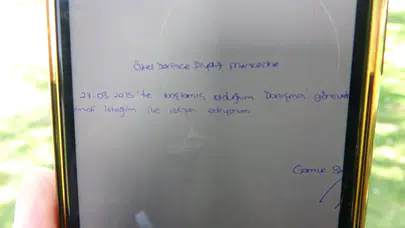 Özel Darıca Diyaliz Merkezine
27.03.2015'te başlamış olduğum Danışma
isteğim ile istifa ediyorum
Gamze